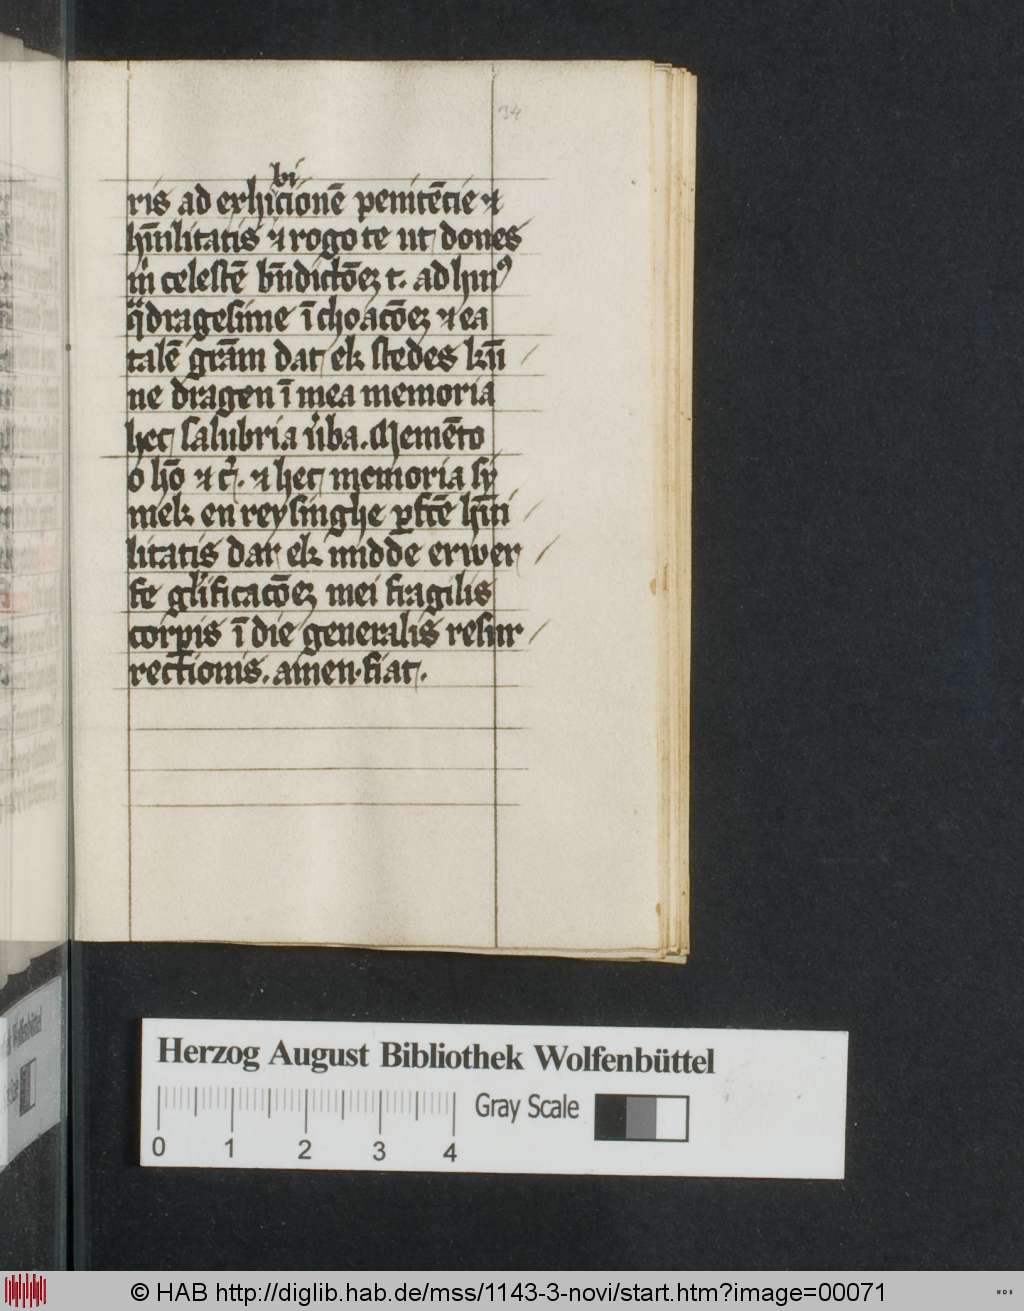 34
bi
ris ad exhicionē penitētie ⁊
hūilitatis ⁊ rogo te ut dones
m celestē bn̄dictōeꝫ t. ad huiꝰ
qͣdragesime īchoacōeꝫ ⁊ ea
talē grām dat ek stedes kūn
ne dragen ī mea memoria
hec salubria v̓ba. Memēto
o hō ⁊ cͬ. ⁊ hec memoria sy
mek en reysinghe ꝑfcē hūi
litatis dat ek midde erwer
fe gl̓ificacōeꝫ mei fragilis
corpis ī die generalis resur
rectionis. amen. fiat.
Herzog August Bibliothek Wolfenbüttel
Gray Scale
0 1 2 3 4
© HAB http://diglib.hab.de/mss/1143-3-novi/start.htm?image=00071